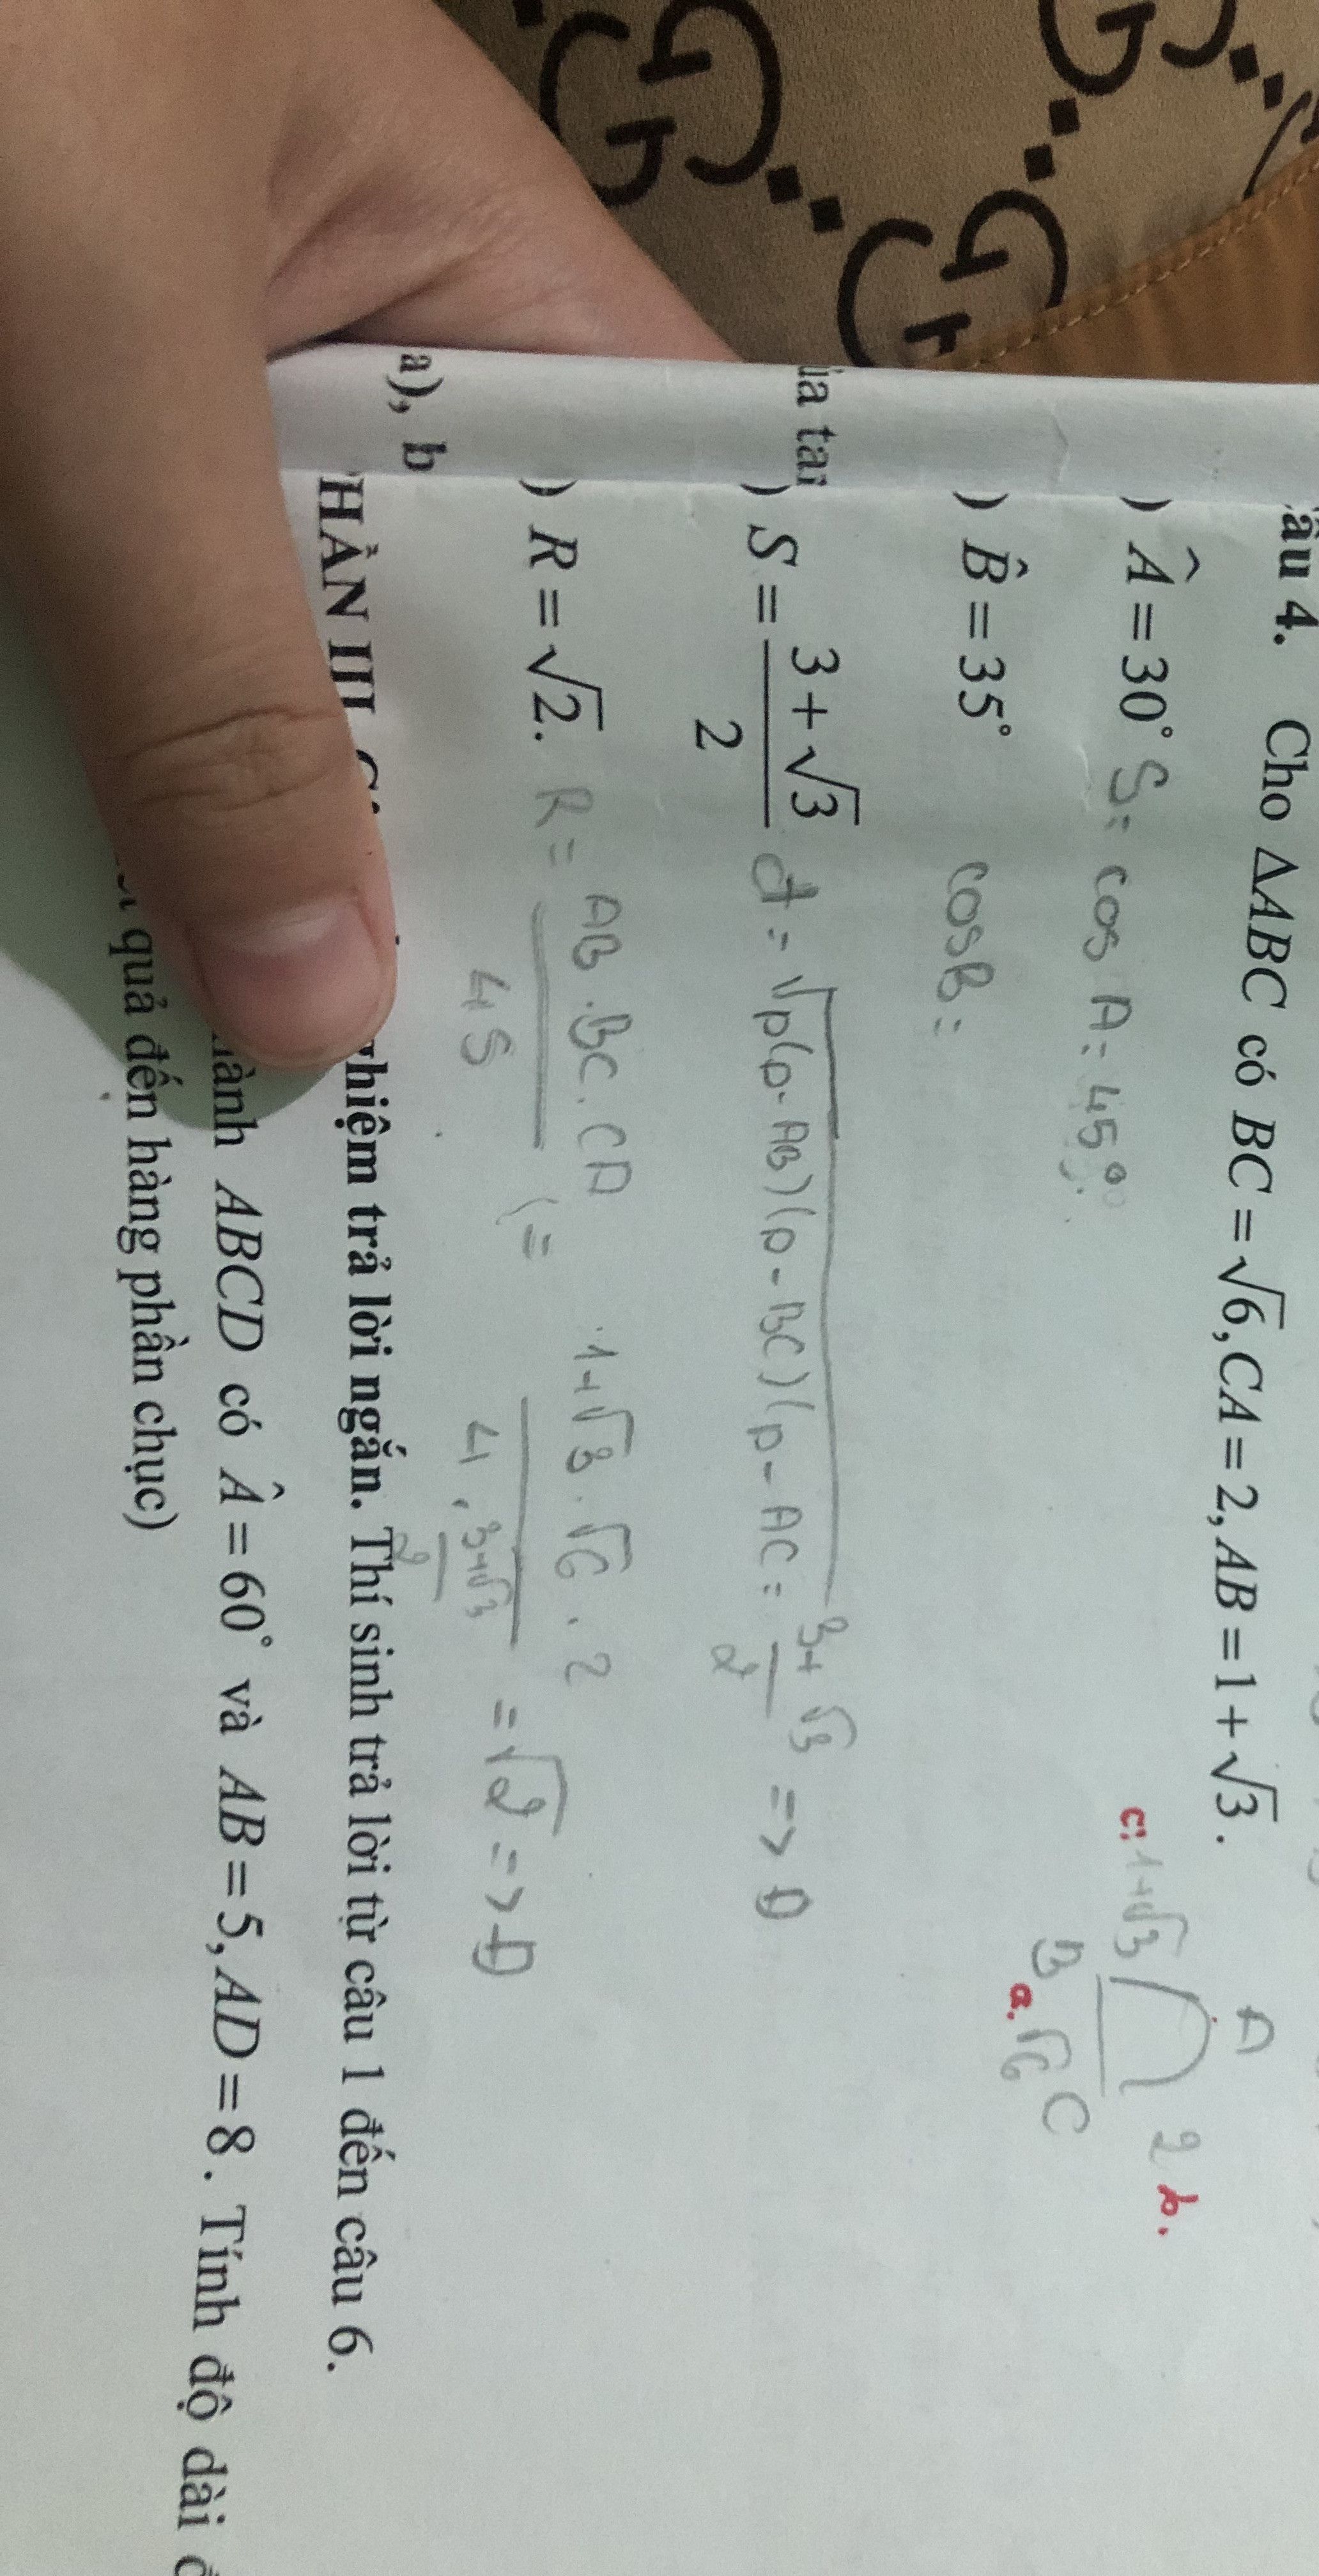 âu 4. Cho ΔABC có BC = √6, CA = 2, AB = 1 + √3.
A
) Â = 30° S: cos A = 45°
c: 1+√3 2 b.
B C
a. √6
) B̂ = 35° cosB =
) S = (3 + √3)/2 đ = √p(p-AB)(p-BC)(p-AC = (3+√3)/2 => Đ
) R = √2. R = (AB . BC . CA)/(4S) (= (1+√3 . √6 . 2)/(4 . (3+√3)/2) = √2 => Đ
a), b
HẦN III. ghiệm trả lời ngắn. Thí sinh trả lời từ câu 1 đến câu 6.
hành ABCD có Â = 60° và AB = 5, AD = 8. Tính độ dài
quả đến hàng phần chục)